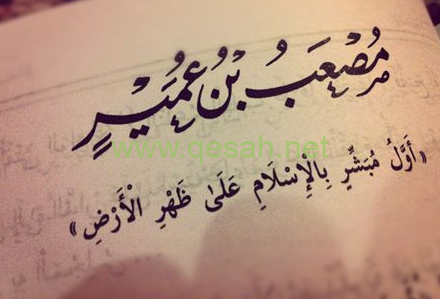 مُصْعَبُ بْنُ عُمَيْرٍ
www.qesah.net
«أَوَّلُ مُبَشِّرٍ بِالْإِسْلَامِ عَلَىٰ ظَهْرِ الْأَرْضِ»